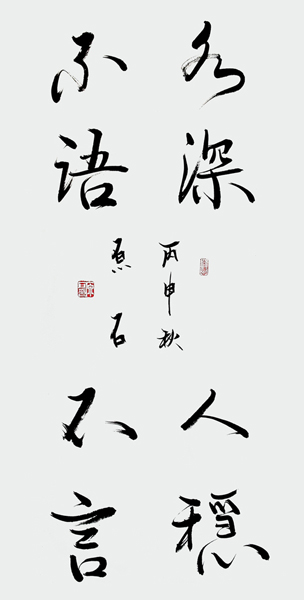 水深
不语
人穩
不言
丙申秋
石